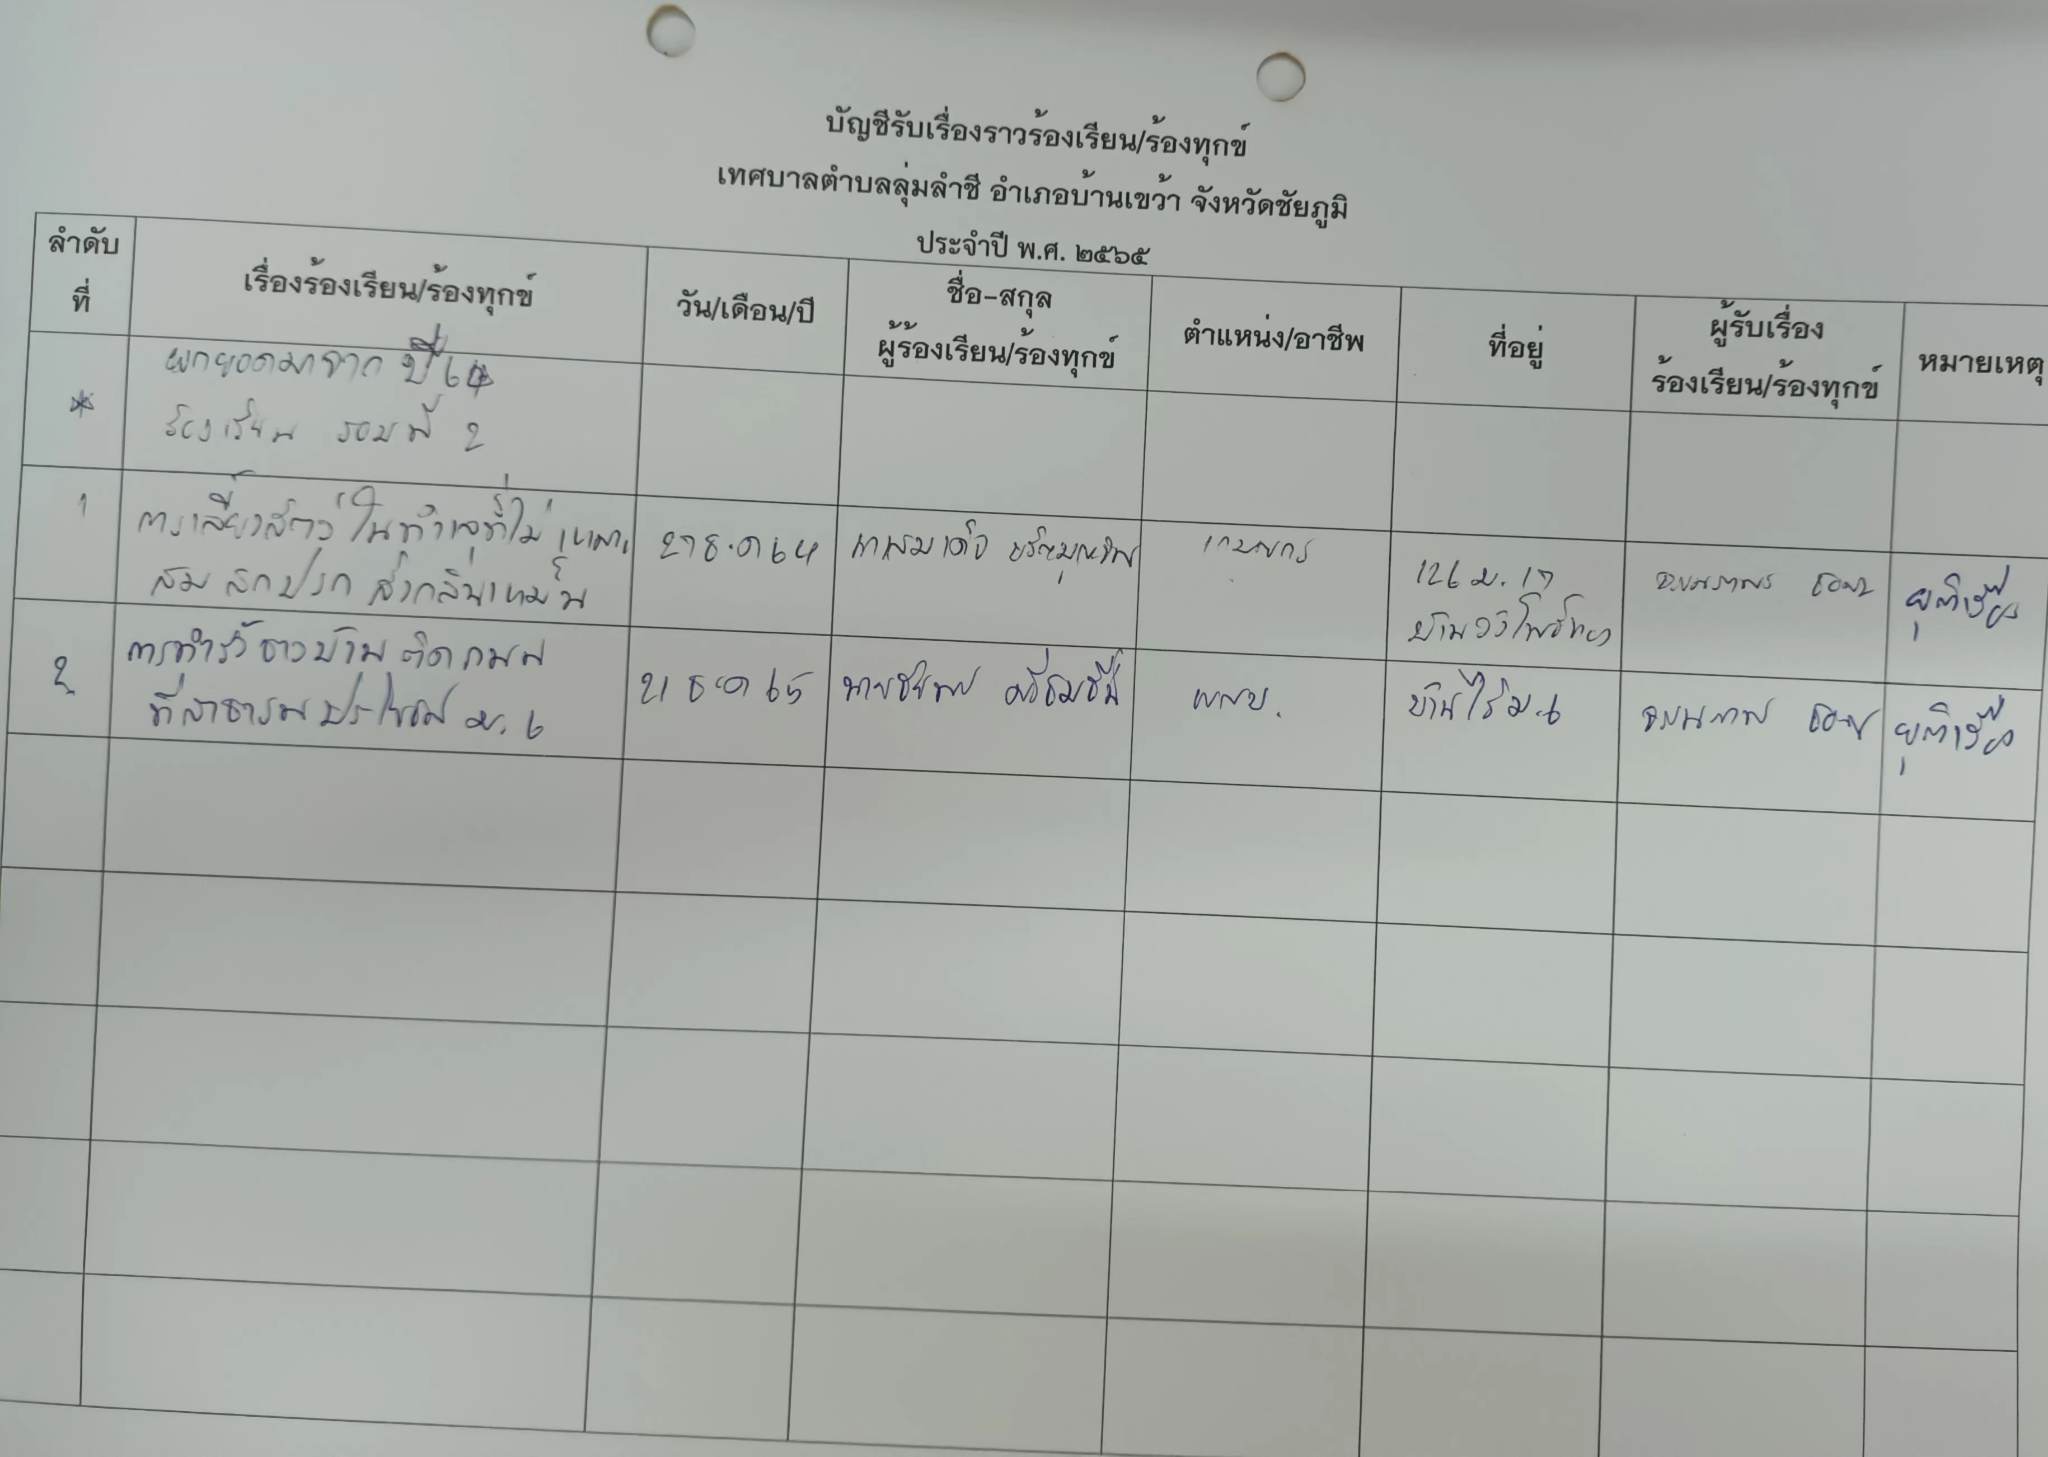 บัญชีรับเรื่องราวร้องเรียน/ร้องทุกข์
เทศบาลตำบลลุ่มลำชี อำเภอบ้านเขว้า จังหวัดชัยภูมิ
ประจำปี พ.ศ. ๒๕๖๕
ลำดับ
ที่
เรื่องร้องเรียน/ร้องทุกข์
วัน/เดือน/ปี
ชื่อ-สกุล
ผู้ร้องเรียน/ร้องทุกข์
ตำแหน่ง/อาชีพ
ที่อยู่
ผู้รับเรื่อง
ร้องเรียน/ร้องทุกข์
หมายเหตุ
*
ยกยอดมาจาก ปี 64
ร้องเรียน รอบที่ 2
1
การเลี้ยงสัตว์ในทำเลที่ไม่เหมาะ
สม สกปรก ส่งกลิ่นเหม็น
27 ธ.ค 64
เกษตรกร
126 ม.
บ้าน
ยุติเรื่อง
2
การทำรั้วชาวบ้าน ติดถนน
ที่สาธารณประโยชน์ ม. 6
21 ธ.ค 65
บ้านไร่ ม.6
ยุติเรื่อง